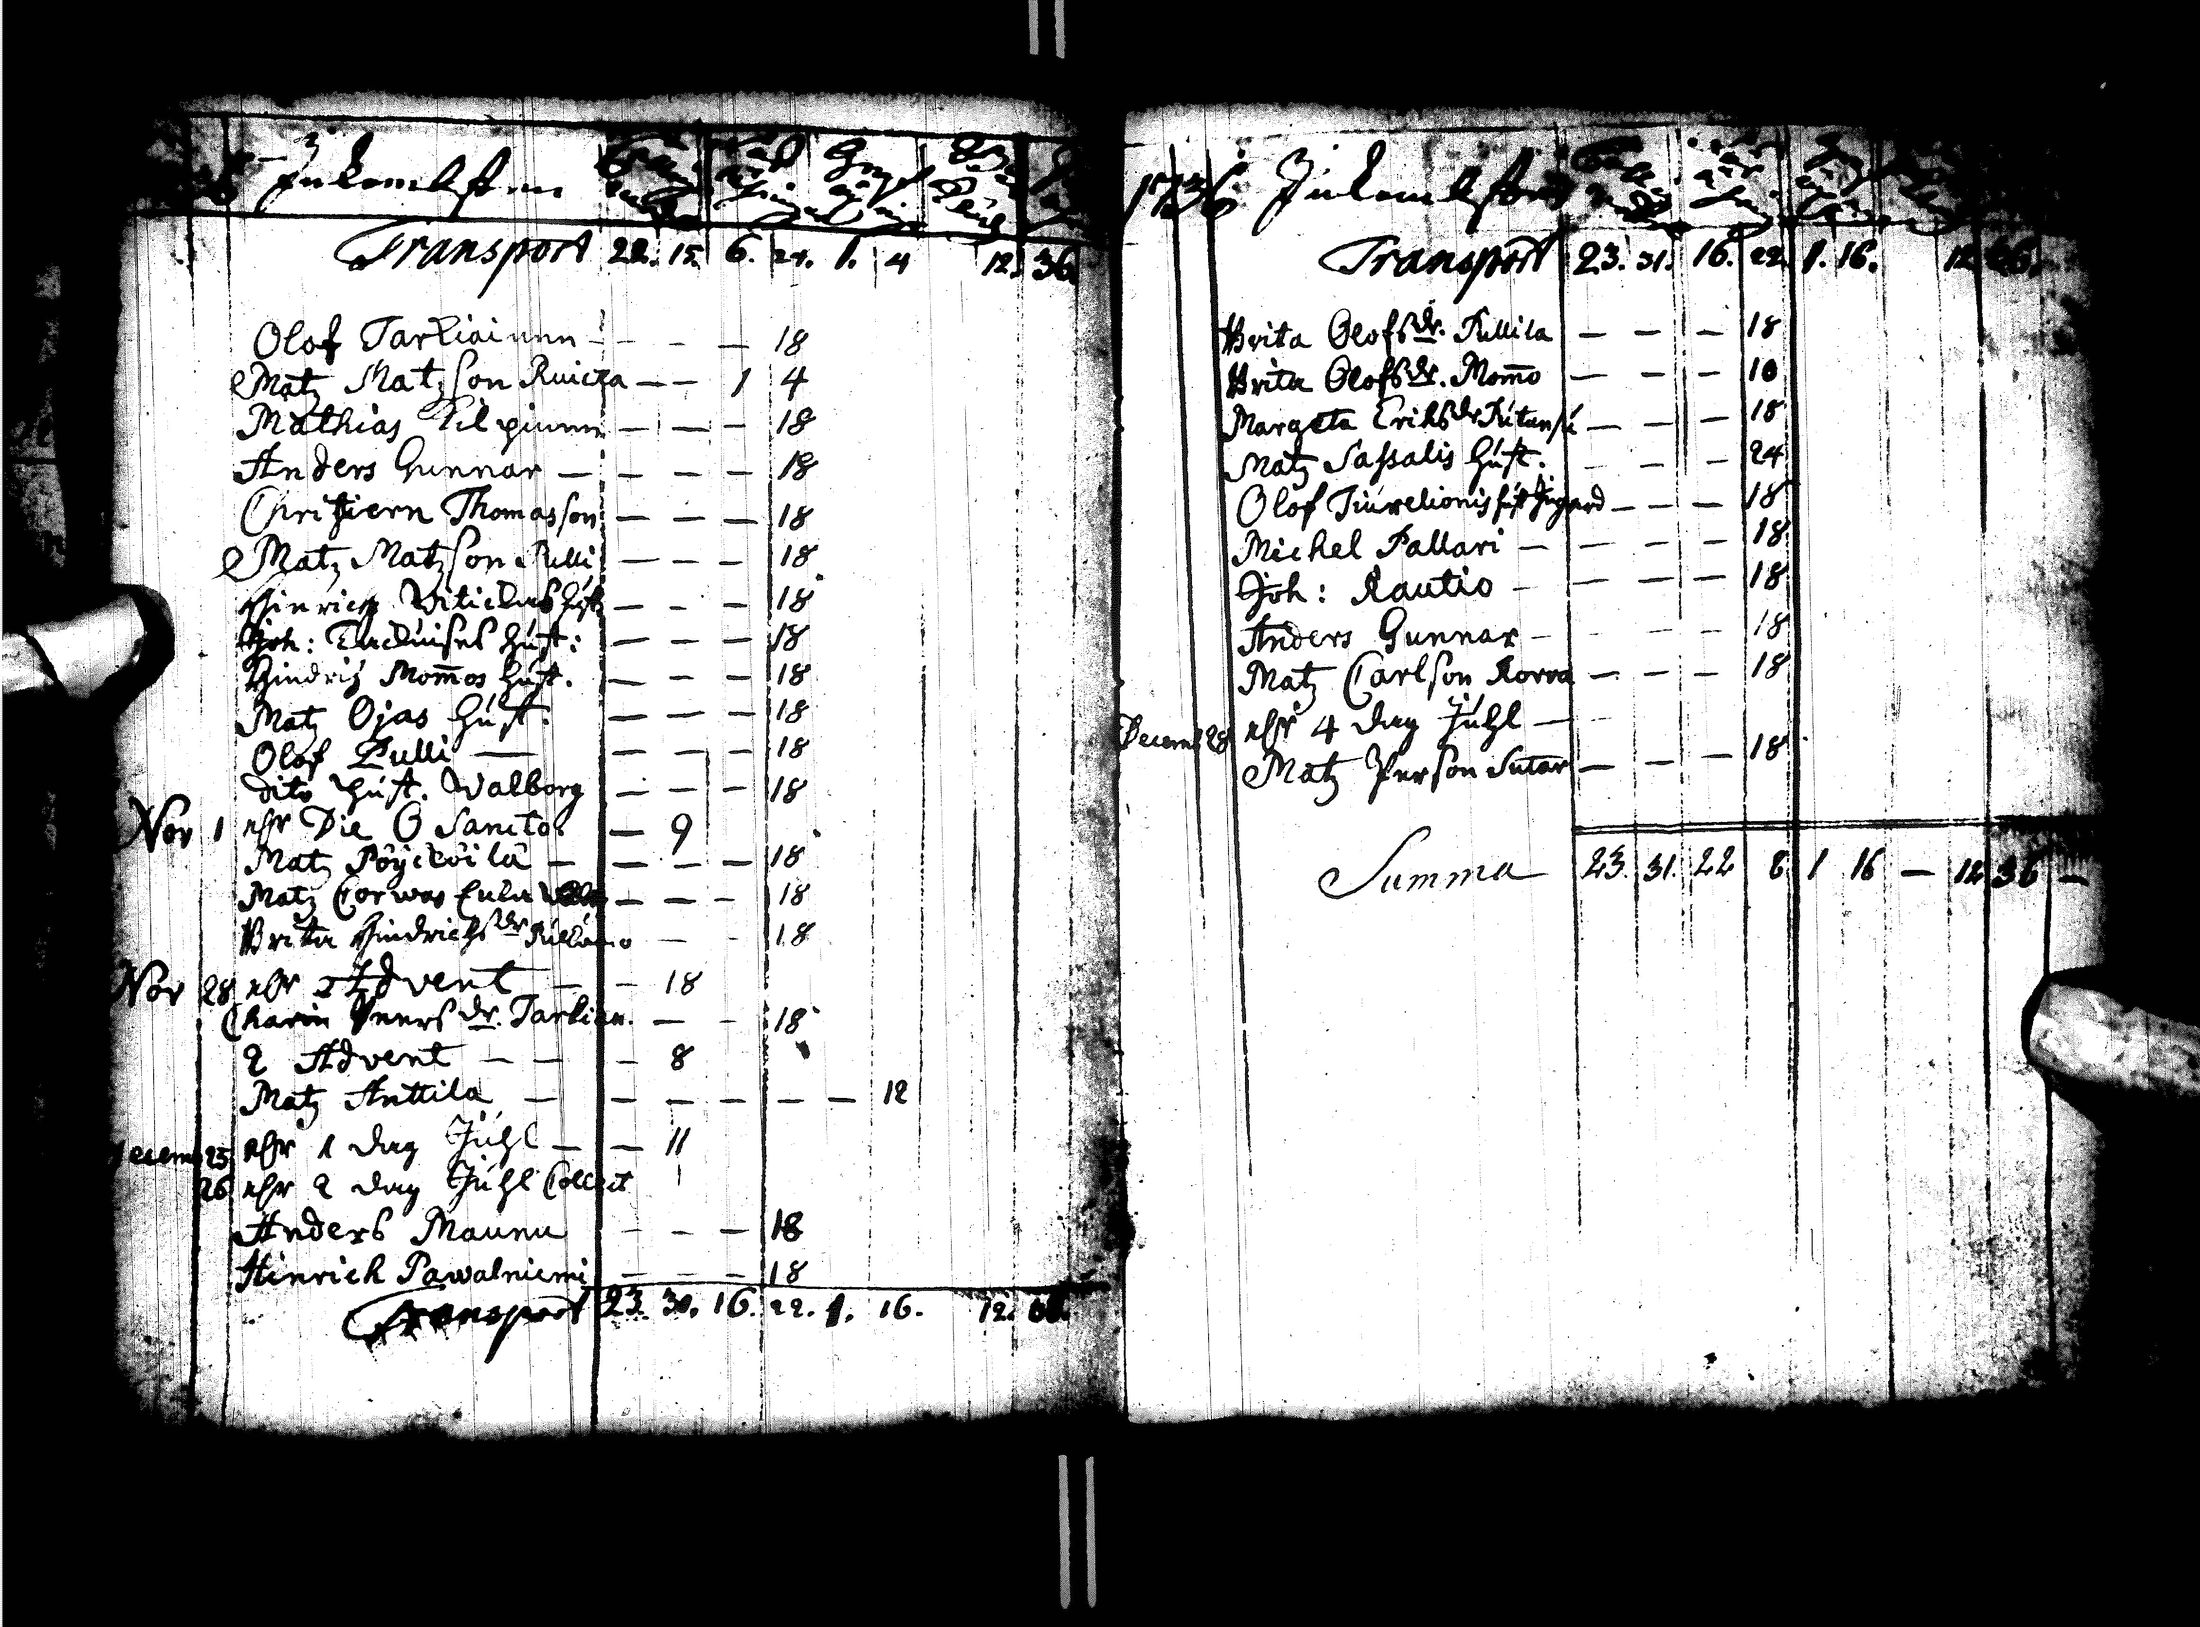 Inkombsten
Transport 22. 15. 6. 21. 1. 4 12. 36
Olof Tarkiainen - - - — 18
Matz Matzson Ruicka — — 1 4
Mathias Pilpinen — — — 18
Anders Gunnar — - - — 18
Christiern Thomasson — — — 18
Matz Matzson Pulli — — — 18
Hinrich — - — 18
Joh: hust: — — — 18
Hindrich Mom̄os hust. — - — 18
Matz Ojas hust: — — — 18
Olof Pulli — — — — 18
dito hust. Walborg — - — 18
Nov 1 ehr Die O Sancto. — 9
Matz Pöyckölä — — — — 18
Matz Corwas — — - 18
Brita Hindrichs dr — - 18
Nov 28 ehr 1 Advent — - 18
Charin Peers dr. Tarkian. — - 18
2 Advent — — — 8
Matz Anttila — — — — — — 12
Decemb 25 ehr 1 dag Juhl — — 11
26 ehr 2 dag Juhl Collect 1
Anders Maunu - - — 18
Hinrich Pawalniemi — - — 18
Transport 23. 31. 16. 22. 1. 16. 12. 36.
1736 Inkombsten
Transport 23. 31. 16. 22. 1. 16. 12 36.
Brita Olofs dr. Pullila — — — 18
Brita Olofs dr. Mom̄o — — — 10
Margeta Eriks dr — — — 18
Matz Sassalis hust. - — — 24
Olof — — — 18
Michel Pallari — — — — 18
Joh: Rautio - — — — 18
Anders Gunnar - - — — 18
Matz Carlson Korva — - — 18
Decemb 28 ehr 4 dag Juhl —
Matz Person — — — 18
Summa 23. 31. 22 8 1 16 — 12 36 —